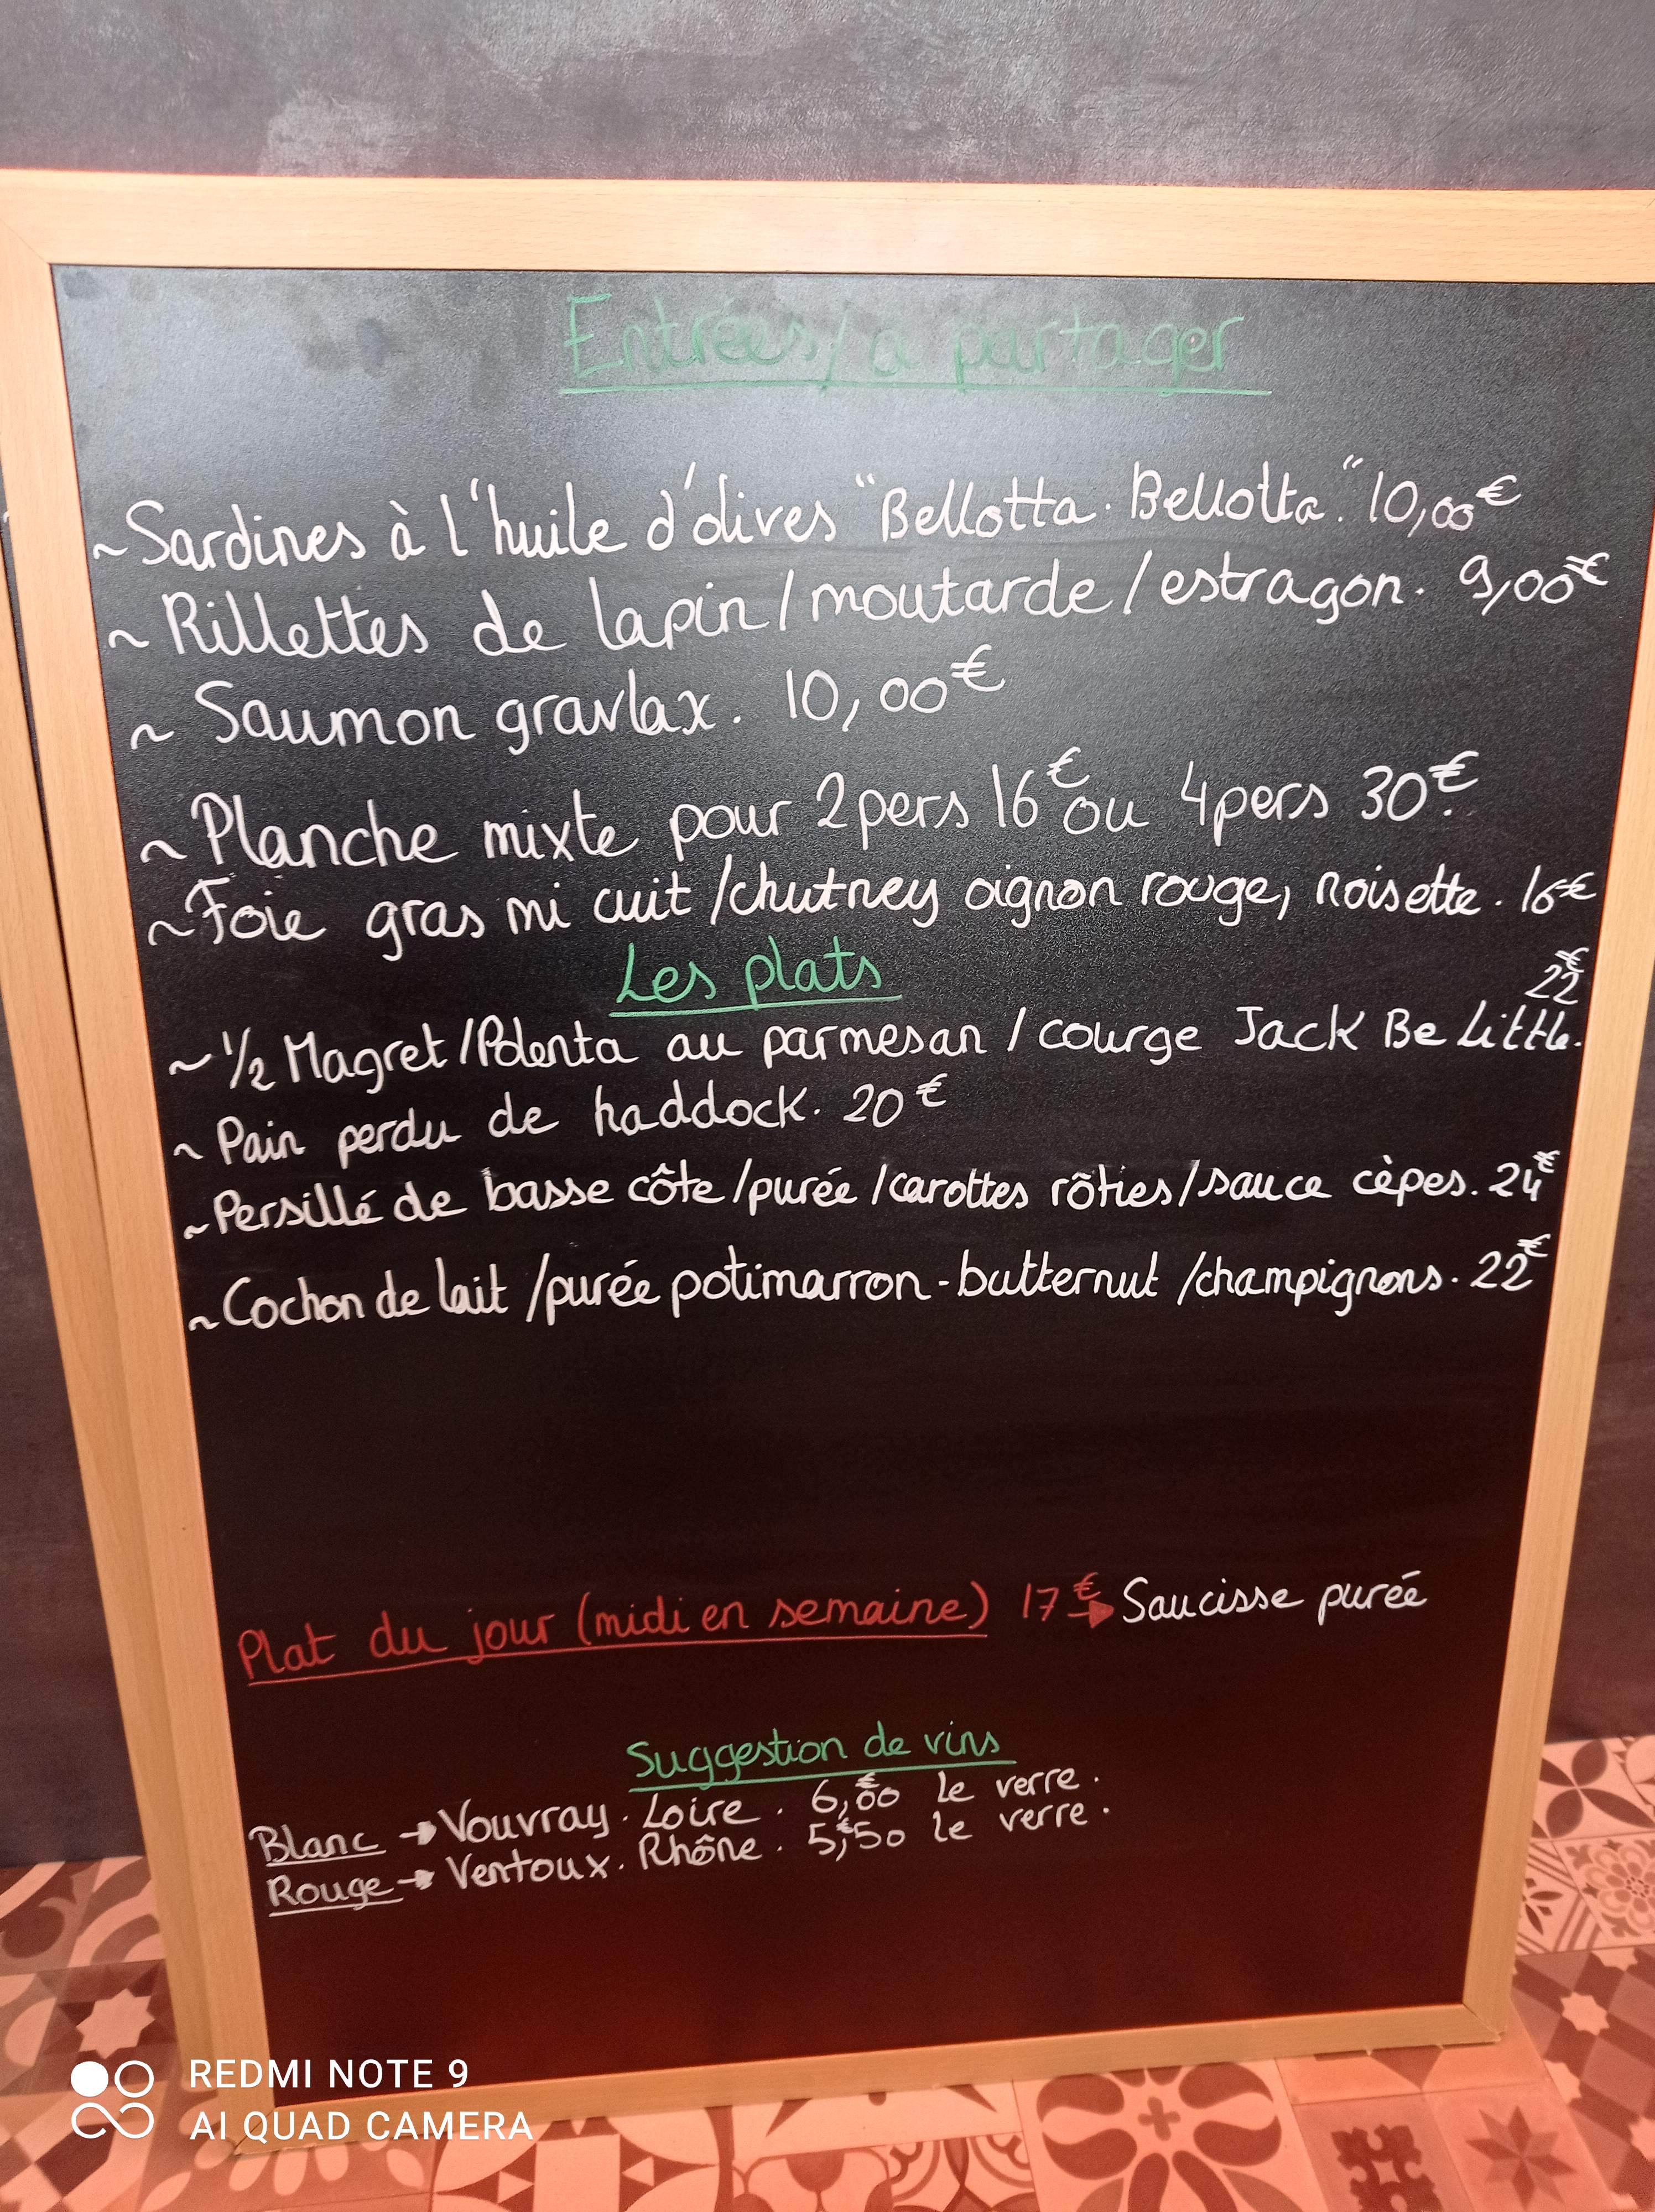 Entrées/a partager
~Sardines à l'huile d'olives "Bellotta.Bellotta." 10,00€
~ Rillettes de lapin/moutarde/estragon. 9,00€
~ Saumon gravlax. 10,00€
~ Planche mixte pour 2pers 16€ ou 4pers 30€.
~Foie gras mi cuit /chutney oignon rouge, noisette. 16€
Les plats
22€
~ 1/2 Magret/Polenta au parmesan / courge Jack Be Little.
~ Pain perdu de haddock. 20€
~Persillé de basse côte/purée/carottes rôties/sauce cèpes. 24€
~Cochon de lait /purée potimarron-butternut /champignons. 22€
Plat du jour (midi en semaine) 17€ → Saucisse purée
Suggestion de vins
Blanc → Vouvray. Loire. 6,00€ le verre.
Rouge → Ventoux. Rhône. 5,50€ le verre.
REDMI NOTE 9
AI QUAD CAMERA